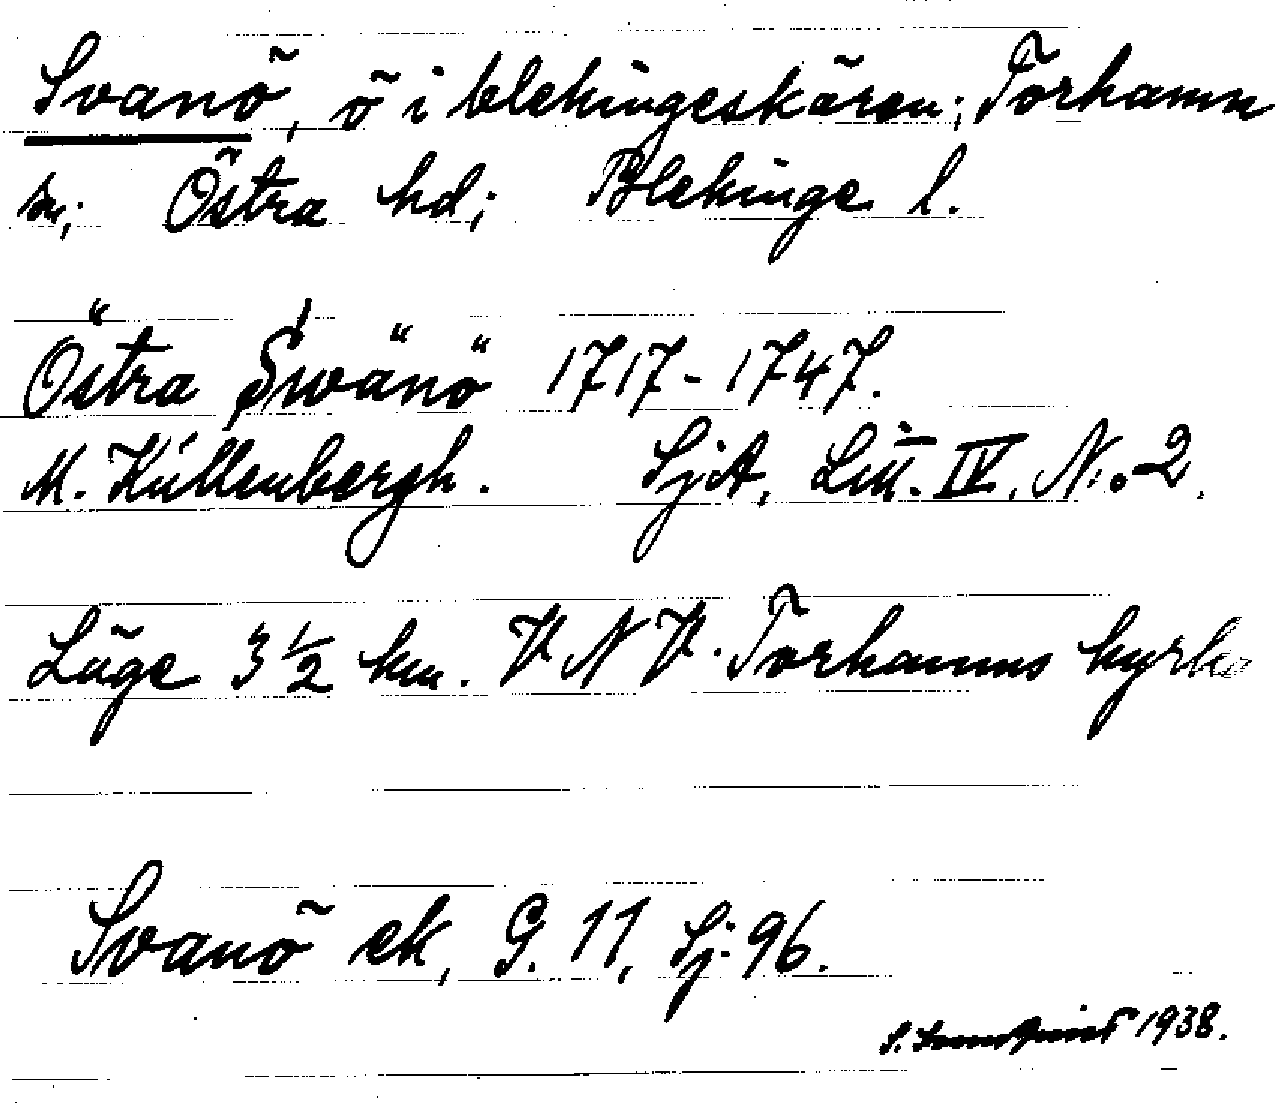 Svanö, ö i blekingeskären; Torhamn
sn; Östra hd; Blekinge l.
Östra Swänö 1717-1747.
M. Küllenbergh. SjA, Litt. IV, N:o 2.
Läge 3 1/2 km. V N V. Torhamns kyrka
Svanö ek, G. 11, Sj. 96.
S. 1938.